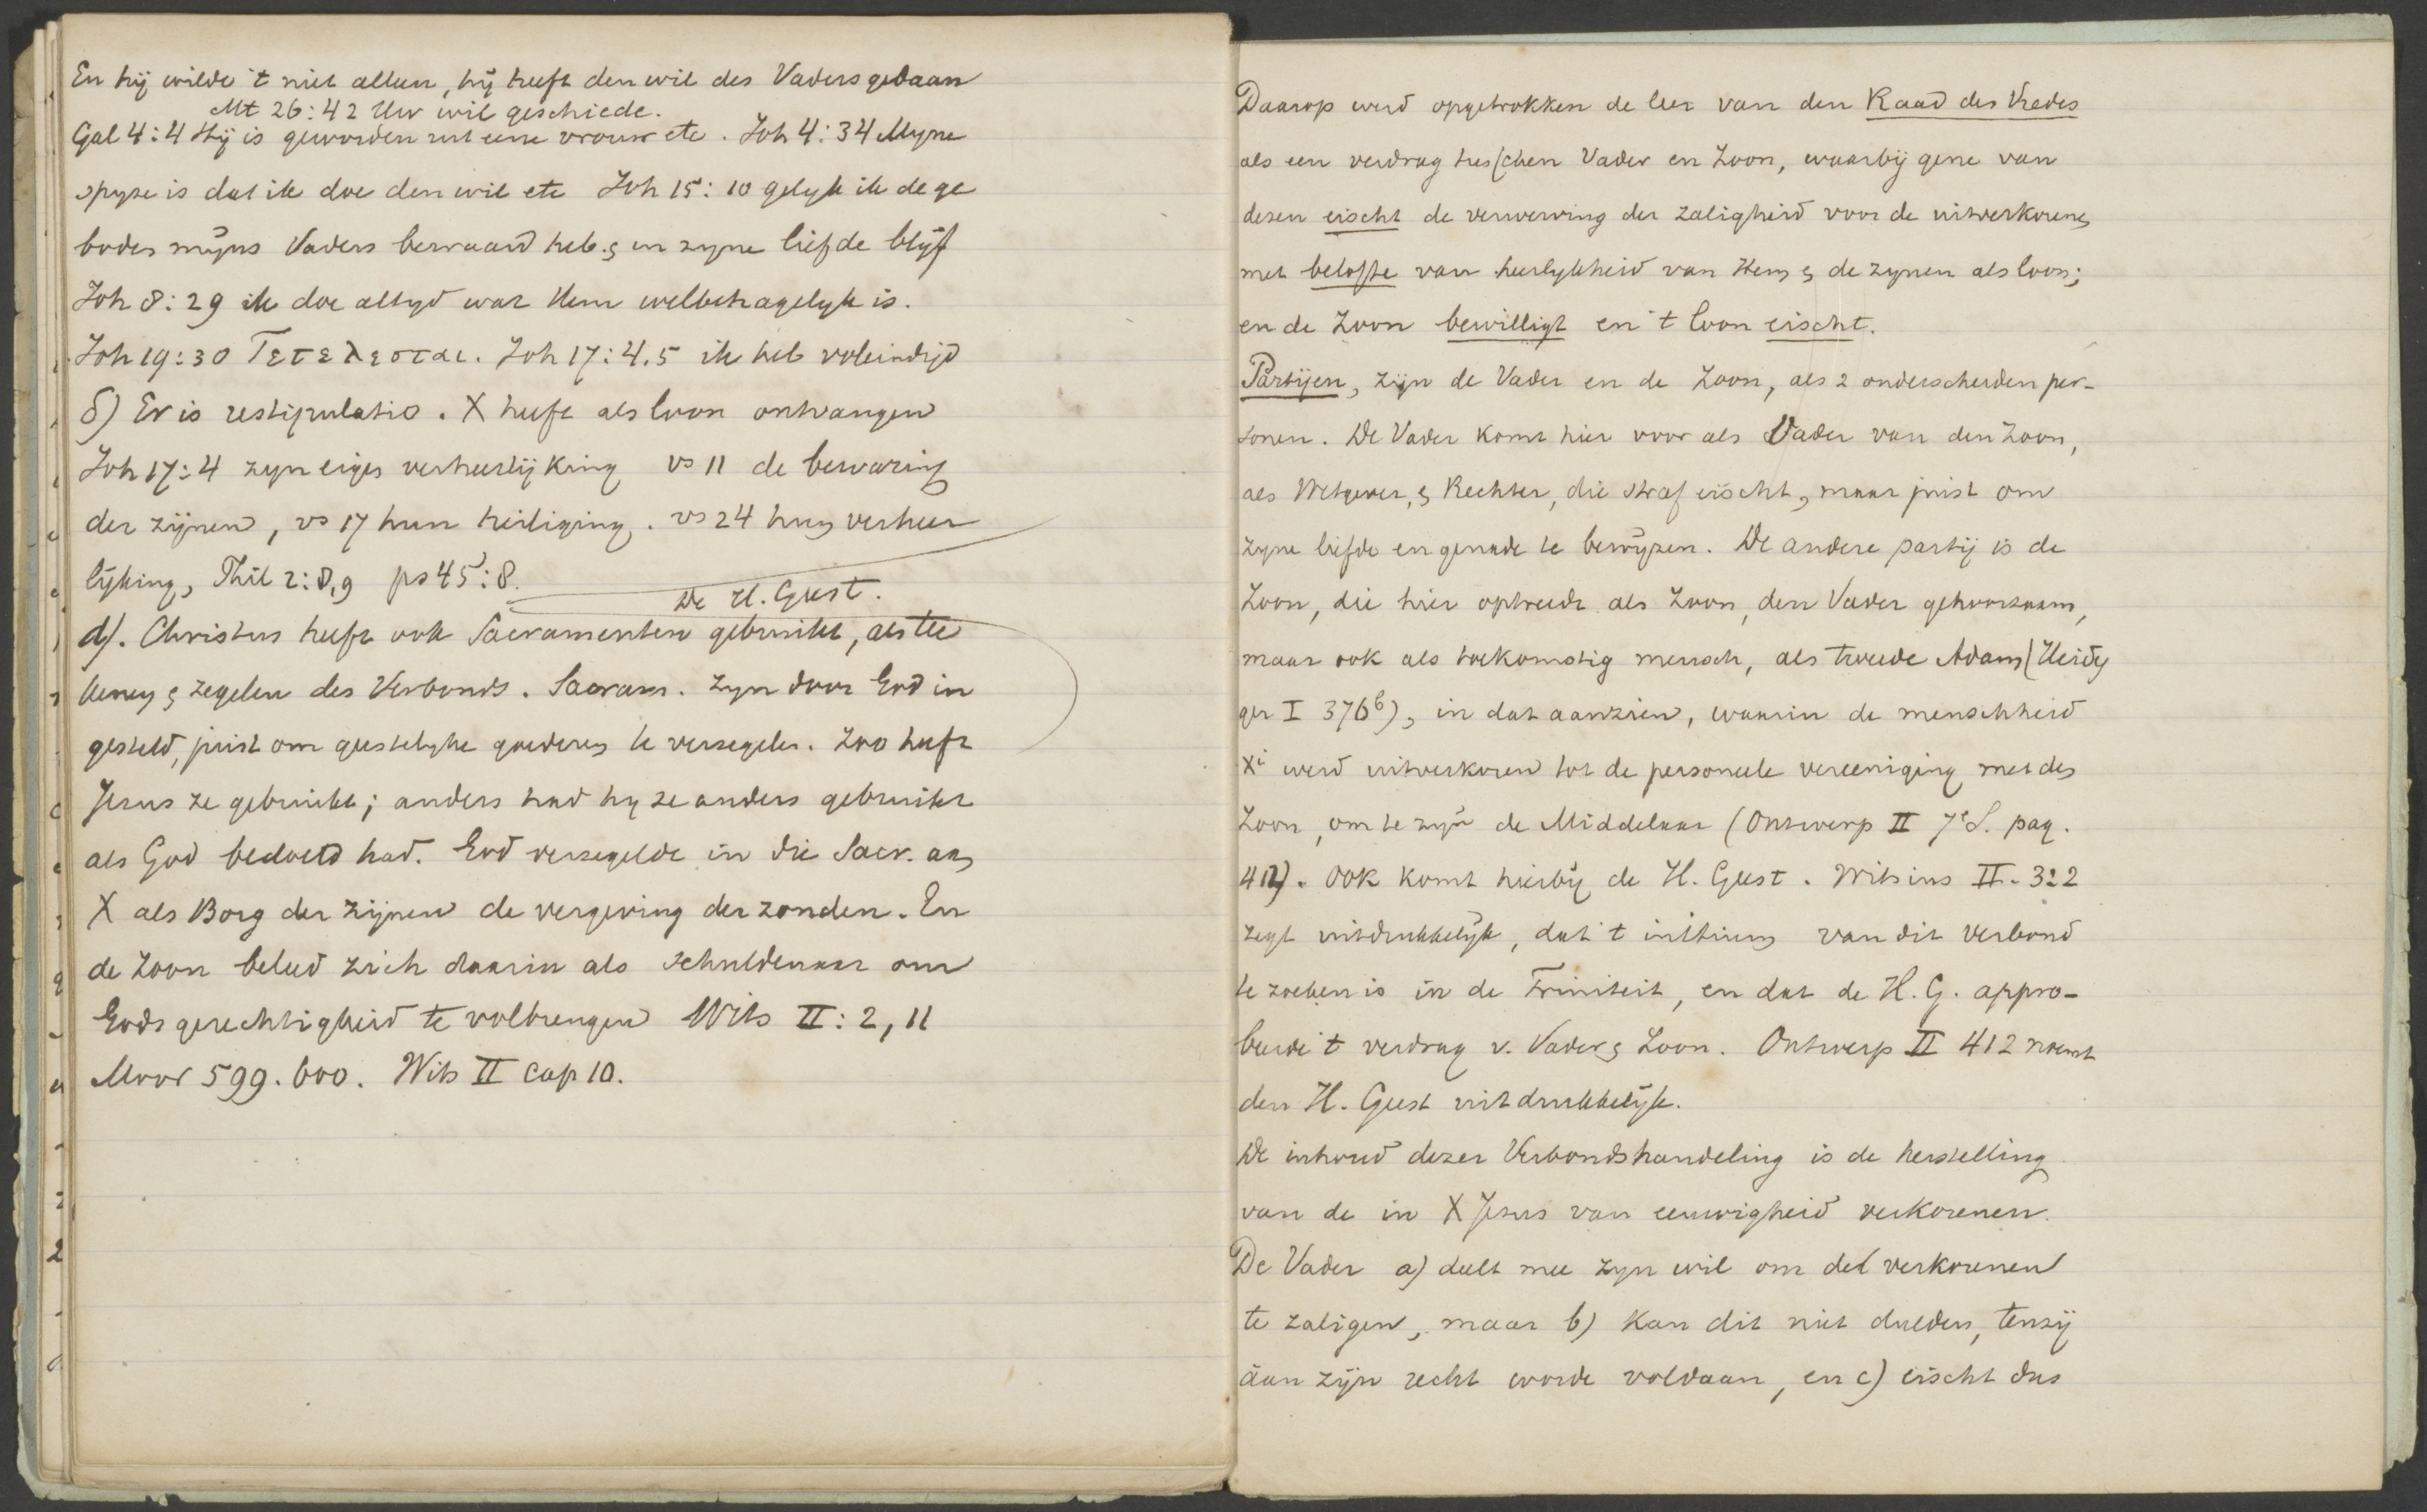 En hij wilde 't niet alleen, hij heeft den wil des Vaders gedaan
Mt 26:42 Uw wil geschiede.
Gal 4:4 Hij is geworden uit eene vrouw etc. Joh 4:34 Myne
spyze is dat ik doe den wil etc Joh 15:10 gelyk ik de ge
boden mijns Vaders bewaard heb. & in zyne liefde blijf
Joh 8:29 ik doe altyd wat Hem welbehagelyk is.
Joh 19:30 Τετελεσται. Joh 17:4.5 ik heb voleindigd
δ) Er is restipulatio. X heeft als loon ontvangen
Joh 17:4 zyn eigen verheerlijking vs 11 de bewaring
der zijnen, vs 17 hun heiliging. vs 24 hun verheer
lijking, Phil 2:8,9 ps 45:8.
De H. Geest.
d). Christus heeft ook Sacramenten gebruikt, als tee
kenen & zegelen des Verbonds. Sacram. zyn door God in
gesteld, juist om geestelyke goederen te verzegelen. Zoo heeft
Jezus ze gebruikt; anders had hy ze anders gebruikt
als God bedoeld had. God verzegelde in die Sacr. aan
X als Borg der zijnen de vergeving der zonden. En
de Zoon beleed zich daarin als schuldenaar om
Gods gerechtigheid te volbrengen Wits II: 2, 11
Moor 599. 600. Wits II cap 10.
Daarop werd opgetrokken de leer van den Raad des Vredes
als een verdrag tusschen Vader en Zoon, waarbij gene van
dezen eischt de verwerving der zaligheid voor de uitverkorenen
met belofte van heerlykheid van Hem & de zynen als loon;
en de Zoon bewilligt en 't loon eischt.
Partijen, zijn de Vader en de Zoon, als 2 onderscheiden per-
sonen. De Vader komt hier voor als Vader van den Zoon,
als Wetgever, & Rechter, die straf eischt, maar juist om
zyne liefde en genade te bewijzen. De andere partij is de
Zoon, die hier optreedt als Zoon, den Vader gehoorzaam,
maar ook als toekomstig mensch, als tweede Adam (Heideg
ger I 376b), in dat aanzien, waarin de menschheid
Xi werd uitverkoren tot de personeele vereeniging met den
Zoon, om te zijn de Middelaar (Ontwerp II 7e S. pag.
412). Ook komt hierbij de H. Geest. Witsius II. 3:2
zegt uitdrukkelijk, dat 't initium van dit Verbond
te zoeken is in de Triniteit, en dat de H. G. appro-
beerde 't verdrag v. Vader & Zoon. Ontwerp II 412 noemt
den H. Geest uitdrukkelijk.
De inhoud dezer Verbondshandeling is de herstelling
van de in X Jesus van eeuwigheid verkorenen.
De Vader a) deelt mee zyn wil om de verkorenen
te zaligen, maar b) kan dit niet dulden, tenzij
aan zijn recht worde voldaan, en c) eischt dus